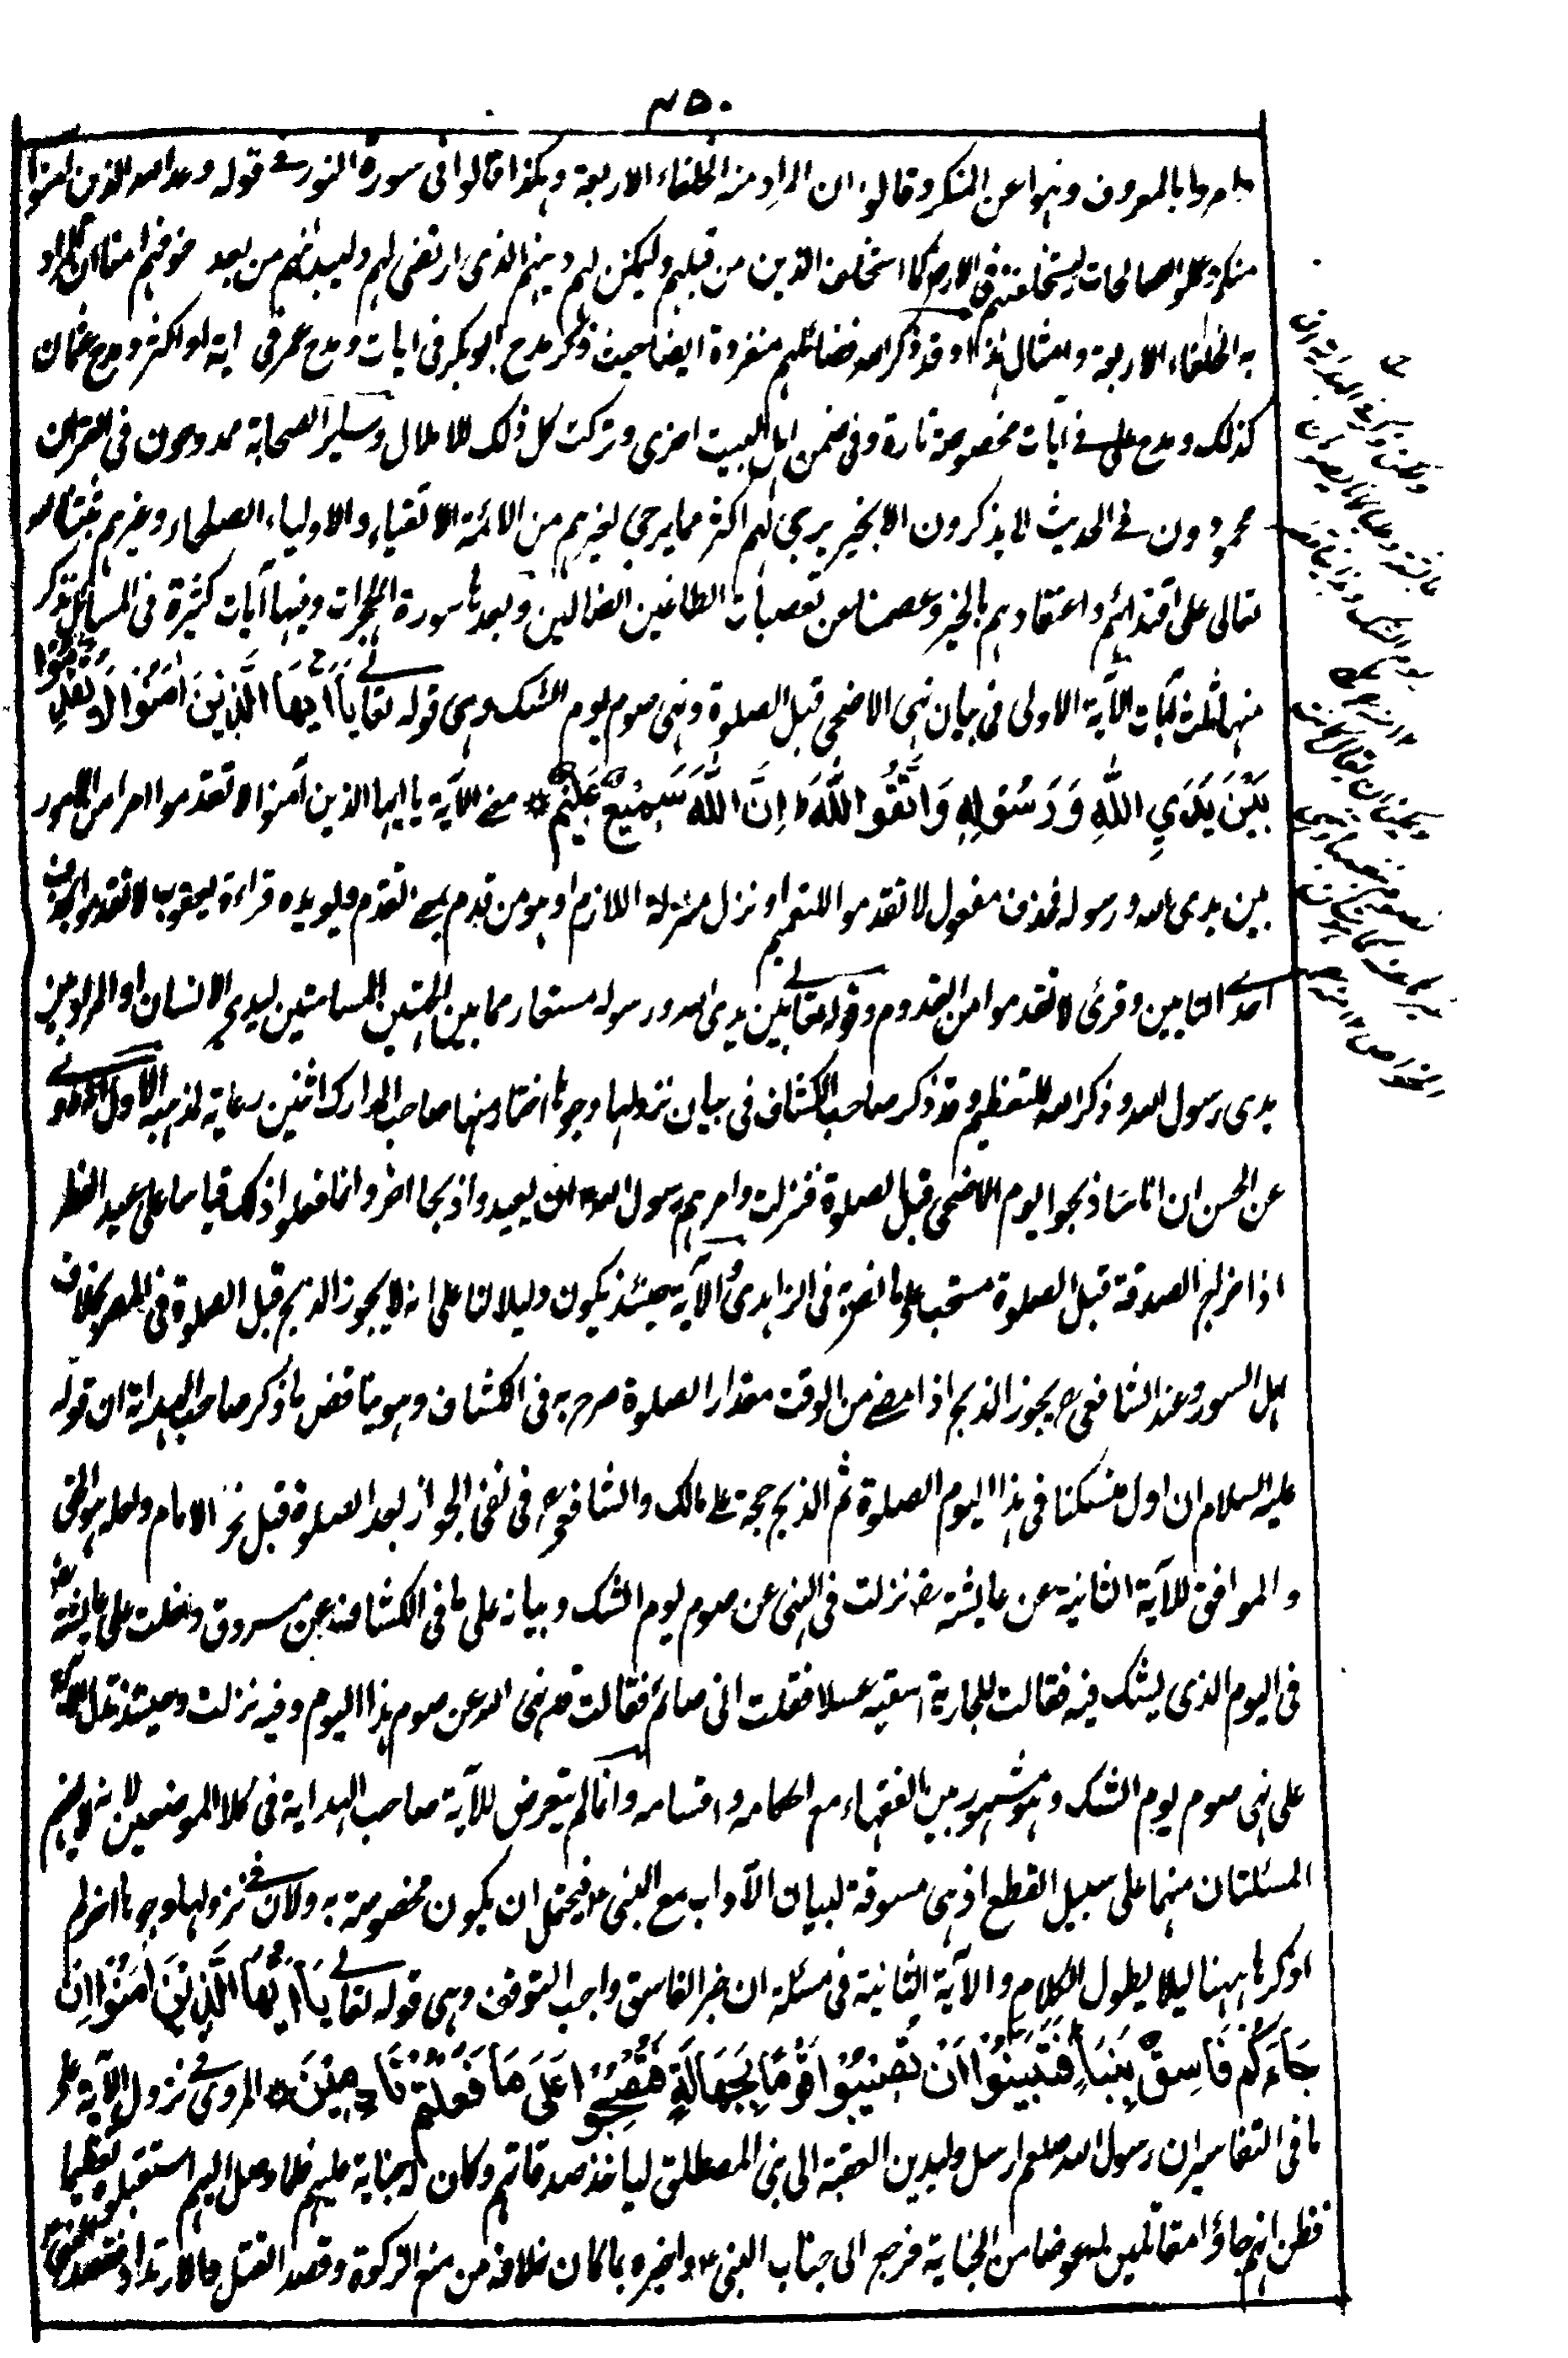 ٤٥٠
وامروا بالمعروف ونهوا عن المنكر وقالوا ان المراد منه الخلفاء الاربعة وهكذا قالوا فى سورة النور فى قوله وعد الله الذين امنوا
منكم وعملوا الصالحات ليستخلفنهم فى الارض كما استخلف الذين من قبلهم وليمكنن لهم دينهم الذى ارتضى لهم وليبدلنهم من بعد خوفهم امنا ان المراد
به الخلفاء الاربعة وامثال هذا وقد ذكر الله فضائلهم منفردة ايضا حيث ذكر مدح ابو بكر فى ايات ومدح عمر فى اية او اكثر ومدح عثمان
كذلك ومدح على فى ايات مخصوصة تارة وفى ضمن اهل البيت اخرى وتركت كل ذلك للاملال وسائر الصحابة ممدوحون فى القران
محمودون فى الحديث لا يذكرون الا بخير يرجى لهم اكثر مما يرجى لغيرهم من الائمة الاتقياء والاولياء الصلحاء وغيرهم ثبتنا الله
تعالى على اقتدائهم واعتقادهم بالخير وعصمنا عن تعصبات الطاغين الضالين وبعدها سورة الحجرات وفيها آيات كثيرة فى المسائل نذكر
منها ثلث آيات الآية الاولى فى بيان نهى الاضحى قبل الصلوة ونهى صوم يوم الشك وهى قوله تعالى يَا اَيُّهَا الَّذِيْنَ اٰمَنُوْا لَا تُقَدِّمُوْا
بَيْنَ يَدَيِ اللّٰهِ وَرَسُوْلِهٖ وَاتَّقُوا اللّٰهَ ط اِنَّ اللّٰهَ سَمِيْعٌ عَلِيْمٌ * معنى الآية يا ايها الذين آمنوا لا تقدموا امرا من الامور
بين يدى الله ورسوله فحذف مفعول لا تقدموا للتعميم او نزل منزلة اللازم او هو من قدم بمعنى تقدم ويؤيده قراءة يعقوب لا تقدموا بحذف
احدى التاءين وقرئ لا تقدموا من القدوم وقوله تعالى بين يدى الله ورسوله مستعار مما بين الجهتين المسامتتين ليدى الانسان او المراد بين
يدى رسول الله وذكر الله للتعظيم وقد ذكر صاحب الكشاف فى بيان نزولها وجوها اختار منها صاحب المدارك اثنين رعاية لمذهبه الاول
عن الحسن ان اناسا ذبحوا يوم الاضحى قبل الصلوة فنزلت وامرهم رسول الله ان يعيدوا ذبحا اخر وانما فعلوا ذلك قياسا على عيد الفطر
اذا مر لهم الصدقة قبل الصلوة مستحبا على ما نص به فى الزاهدى والآية حينئذ يكون دليلا لنا على انه لا يجوز الذبح قبل الصلوة فى المصر بخلاف
اهل السور وعند الشافعى رح يجوز الذبح اذا مضى من الوقت مقدار الصلوة صرح به فى الكشاف وهو يناقض ما ذكر صاحب الهداية ان قوله
عليه السلام ان اول منسكنا فى هذا اليوم الصلوة ثم الذبح حجة على مالك والشافعى رح فى نفى الجواز بعد الصلوة قبل نحر الامام ولعله هو الحق
والموافق للآية الثانية عن عايشة رض نزلت فى النهى عن صوم يوم الشك وبيانه على ما فى الكشاف عن مسروق دخلت على عايشة رض
فى اليوم الذى يشك فيه فقالت للجارية اسقيه عسلا فقلت انى صائم فقالت قد نهى الله عن صوم هذا اليوم وفيه نزلت وحينئذ تدل الآية
على نهى صوم يوم الشك وهو مشهور بين الفقهاء مع احكامه واقسامه وانما لم يتعرض للآية صاحب الهداية فى كلا الموضعين لانه لا يفهم
المسئلتان منها على سبيل القطع اذ هى مسوقة لبيان الآداب مع النبى فيحتمل ان يكون مخصوصة به ولان فى نزولها وجوها اخر لم
اذكرها ههنا ليلا يطول الكلام والآية الثانية فى مسئلة ان خبر الفاسق واجب التوقف وهى قوله تعالى يَا اَيُّهَا الَّذِيْنَ اٰمَنُوْا اِنْ
جَاءَكُمْ فَاسِقٌ بِنَبَاٍ فَتَبَيَّنُوْا اَنْ تُصِيْبُوْا قَوْمًا بِجَهَالَةٍ فَتُصْبِحُوْا عَلٰى مَا فَعَلْتُمْ نَادِمِيْنَ * المروى فى نزول الآية على
ما فى التفاسير ان رسول الله صلعم ارسل وليد بن العقبة الى بنى المصطلق لياخذ صدقاتهم وكان له جناية عليهم فلما وصل اليهم استقبلوه تعظيما
فظن انهم جاؤا مقاتلين له عوضا من الجناية فرجع الى جناب النبى واخبره بما كان خلافه من منع الزكوة وقصد القتل والارتداد